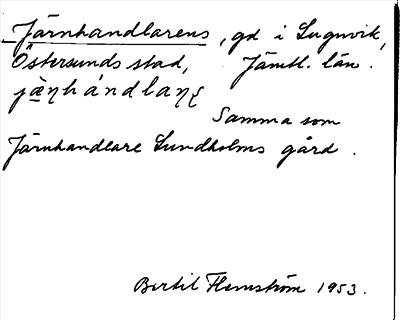 Järnhandlarens, gd i Lugnvik,
Östersunds stad, Jämtl. län.
Samma som
Järnhandlare Lundholms gård.
Bertil Flemström 1953.